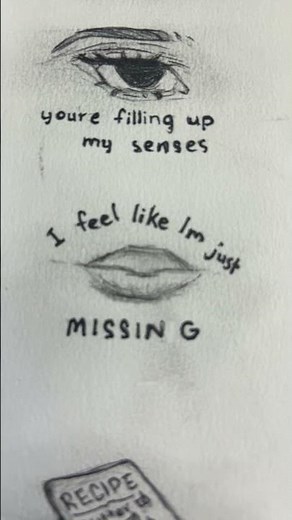 youre filling up
my senses
I feel like Im just
MISSIN G
RECIPE